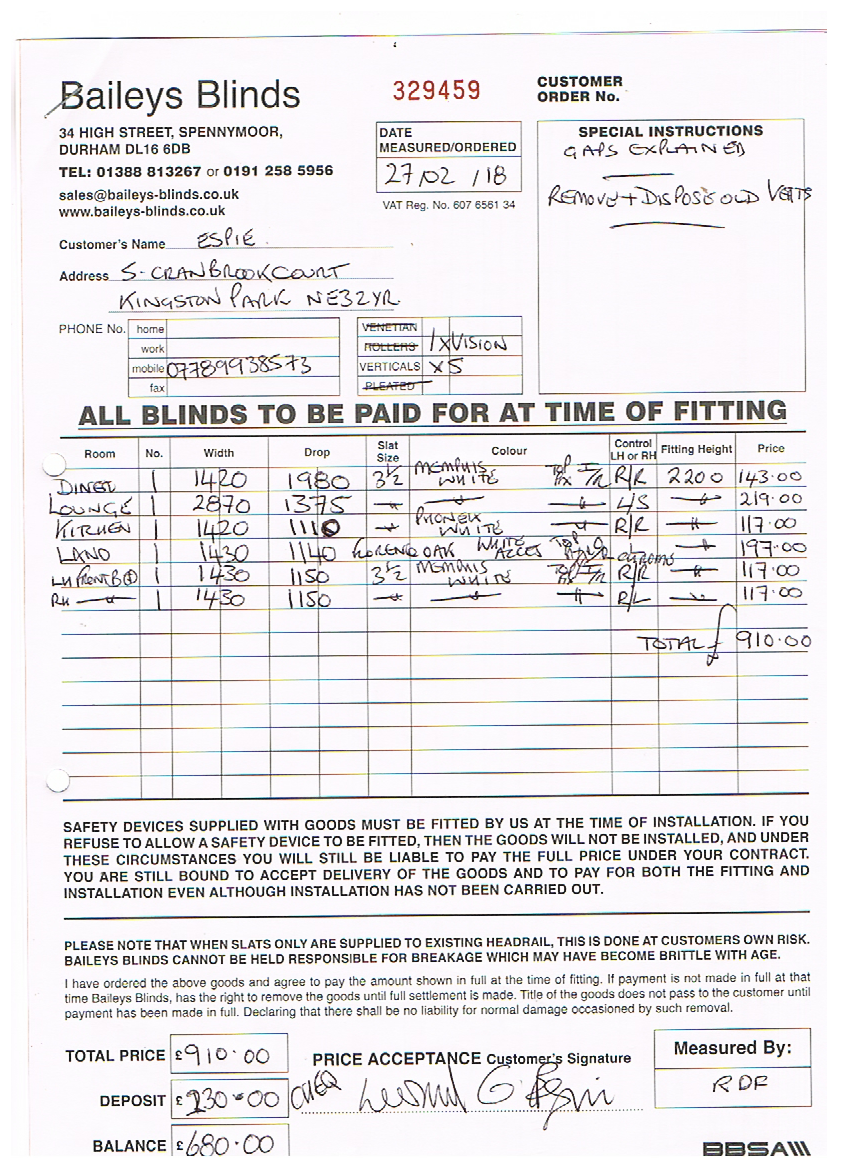 Baileys Blinds
329459
CUSTOMER
ORDER No.
34 HIGH STREET, SPENNYMOOR,
DURHAM DL16 6DB
TEL: 01388 813267 or 0191 258 5956
sales@baileys-blinds.co.uk
www.baileys-blinds.co.uk
DATE
MEASURED/ORDERED
27/02/18
VAT Reg. No. 607 6561 34
SPECIAL INSTRUCTIONS
GAPS EXPLAINED
REMOVE + DISPOSE OLD VERTS
Customer's Name ESPIE
Address 5-CRANBROOK COURT
KINGSTON PARK NE32YR
PHONE No. home
work
mobile 07789938573
fax
VENETIAN
ROLLERS 1XVISION
VERTICALS X5
PLEATED
ALL BLINDS TO BE PAID FOR AT TIME OF FITTING
Room No. Width Drop Slat Size Colour Control LH or RH Fitting Height Price
1 1420 1980 3½ MEMPHIS WHITE R/R 2200 143.00
LOUNGE 1 2870 1375 219.00
KITCHEN 1 1420 1110 WHITE R/R 117.00
LAND 1 1430 1140 OAK WHITE 197.00
1 1430 1150 3½ MEMPHIS WHITE R/R 117.00
RH 1 1430 1150 R/L 117.00
TOTAL £ 910.00
SAFETY DEVICES SUPPLIED WITH GOODS MUST BE FITTED BY US AT THE TIME OF INSTALLATION. IF YOU
REFUSE TO ALLOW A SAFETY DEVICE TO BE FITTED, THEN THE GOODS WILL NOT BE INSTALLED, AND UNDER
THESE CIRCUMSTANCES YOU WILL STILL BE LIABLE TO PAY THE FULL PRICE UNDER YOUR CONTRACT.
YOU ARE STILL BOUND TO ACCEPT DELIVERY OF THE GOODS AND TO PAY FOR BOTH THE FITTING AND
INSTALLATION EVEN ALTHOUGH INSTALLATION HAS NOT BEEN CARRIED OUT.
PLEASE NOTE THAT WHEN SLATS ONLY ARE SUPPLIED TO EXISTING HEADRAIL, THIS IS DONE AT CUSTOMERS OWN RISK.
BAILEYS BLINDS CANNOT BE HELD RESPONSIBLE FOR BREAKAGE WHICH MAY HAVE BECOME BRITTLE WITH AGE.
I have ordered the above goods and agree to pay the amount shown in full at the time of fitting. If payment is not made in full at that
time Baileys Blinds, has the right to remove the goods until full settlement is made. Title of the goods does not pass to the customer until
payment has been made in full. Declaring that there shall be no liability for normal damage occasioned by such removal.
TOTAL PRICE £910.00
PRICE ACCEPTANCE Customer's Signature
Measured By:
RDF
DEPOSIT £230.00 CHEQ
BALANCE £680.00
BBSA